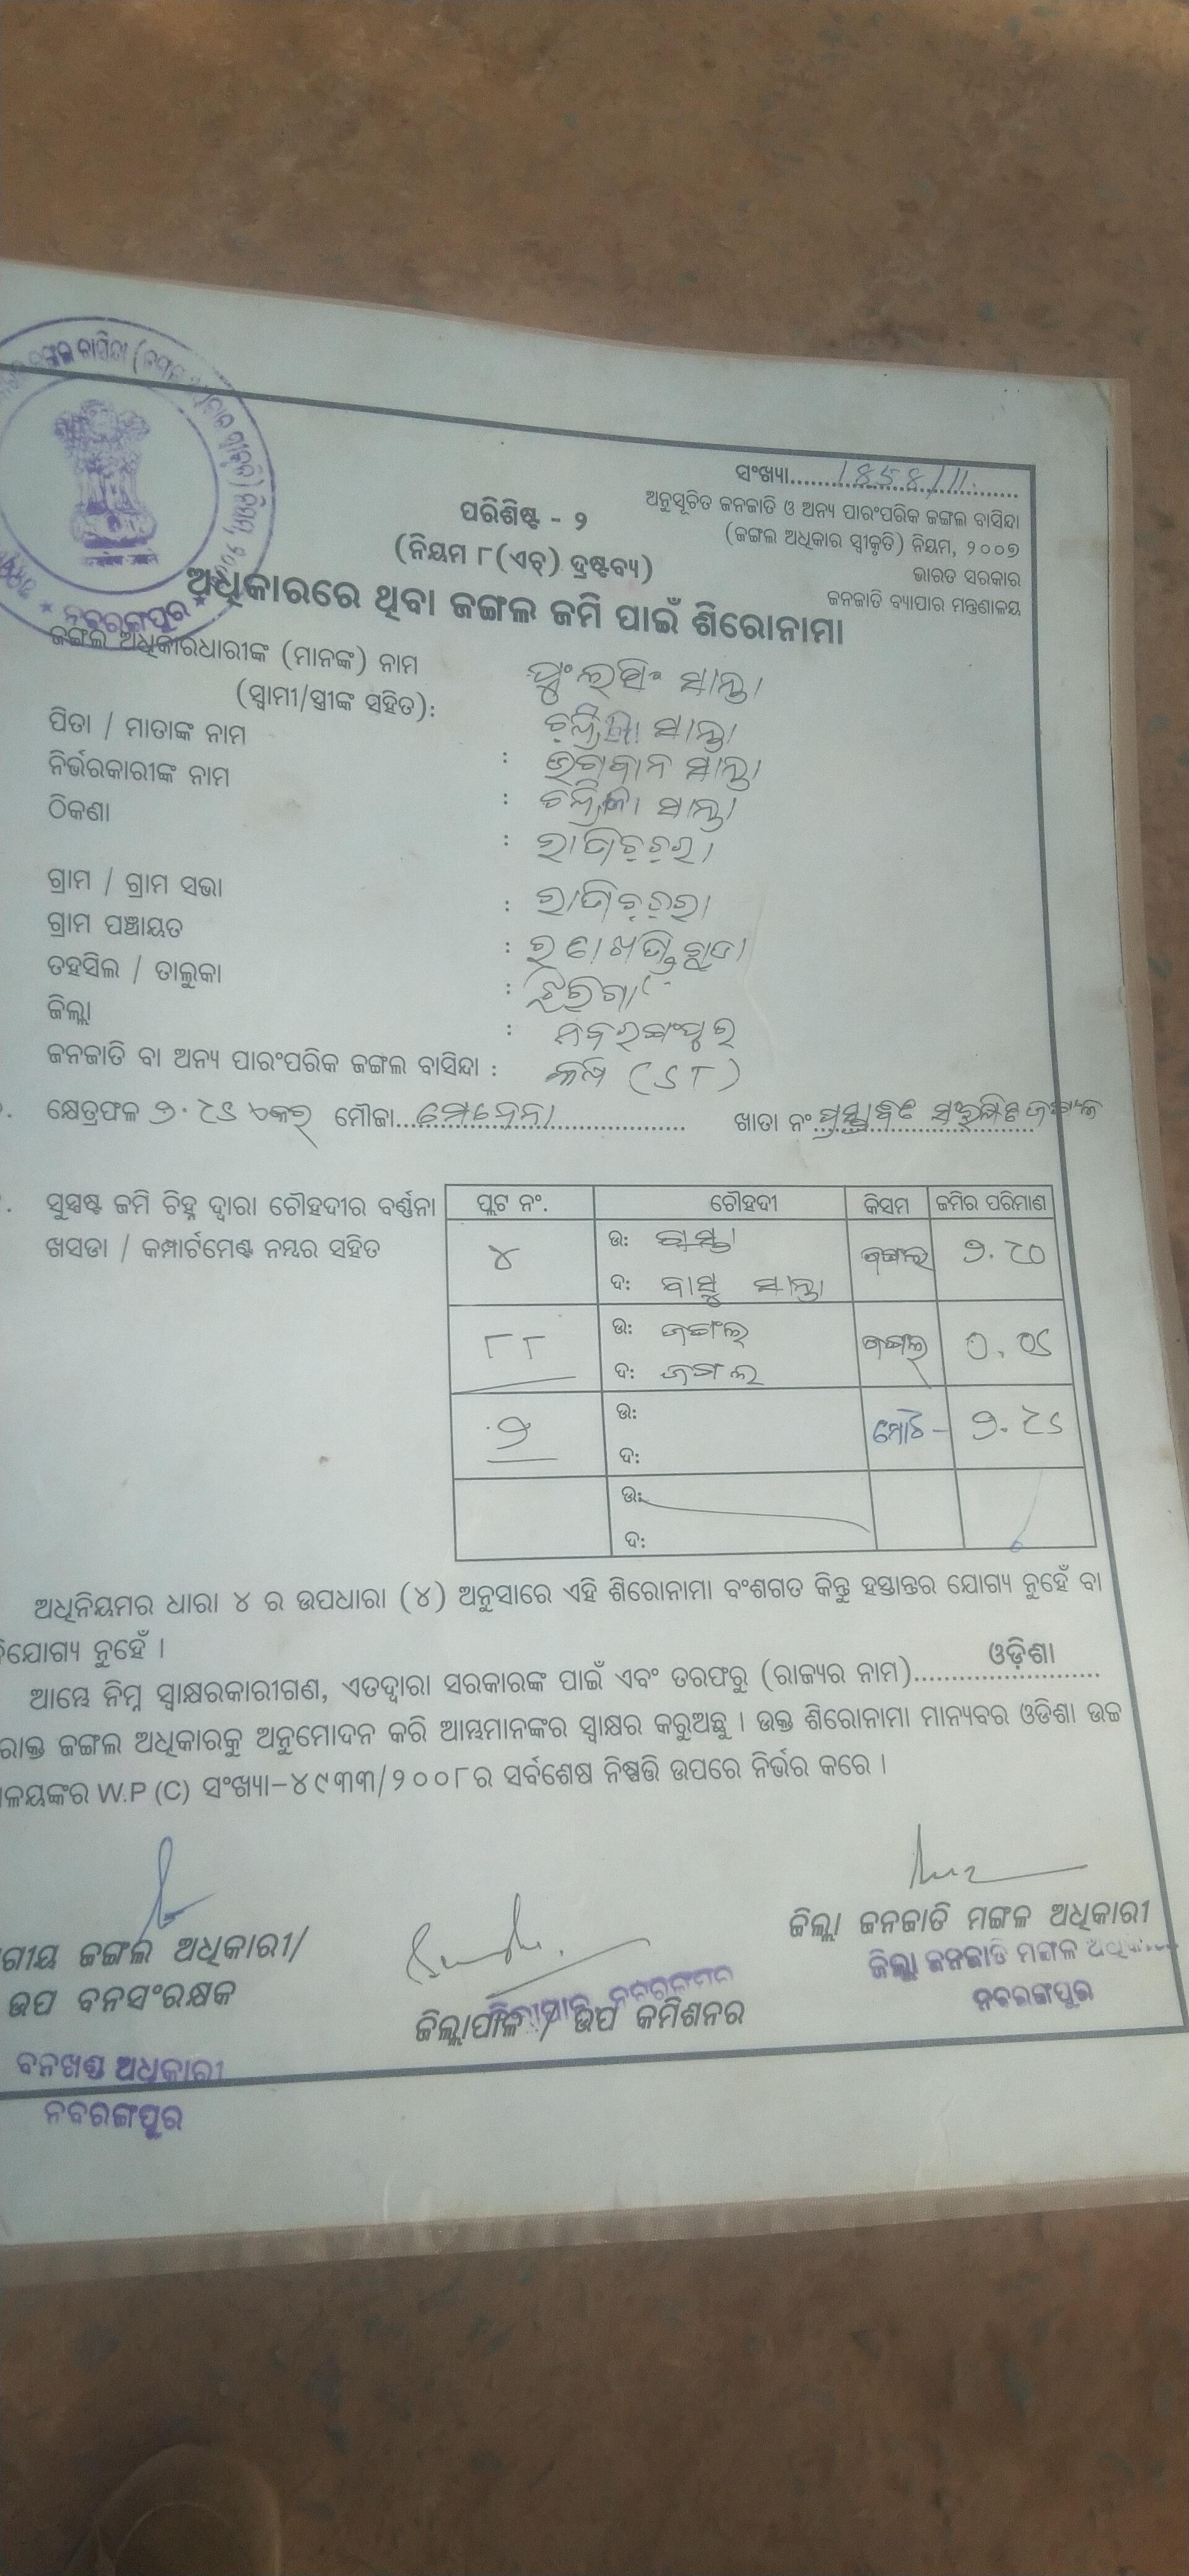 ସଂଖ୍ୟା..........1858/11.
ଅନୁସୂଚିତ ଜନଜାତି ଓ ଅନ୍ୟ ପାରଂପରିକ ଜଙ୍ଗଲ ବାସିନ୍ଦା
(ଜଙ୍ଗଲ ଅଧିକାର ସ୍ୱୀକୃତି) ନିୟମ, ୨୦୦୭
ଭାରତ ସରକାର
ଜନଜାତି ବ୍ୟାପାର ମନ୍ତ୍ରଣାଳୟ
ନବରଙ୍ଗପୁର
ପରିଶିଷ୍ଟ - ୨
(ନିୟମ ୮(ଏଚ୍) ଦ୍ରଷ୍ଟବ୍ୟ)
ଅଧିକାରରେ ଥିବା ଜଙ୍ଗଲ ଜମି ପାଇଁ ଶିରୋନାମା
ଜଙ୍ଗଲ ଅଧିକାରଧାରୀଙ୍କ (ମାନଙ୍କ) ନାମ
(ସ୍ୱାମୀ/ସ୍ତ୍ରୀଙ୍କ ସହିତ): ସାନ୍ତା
ପିତା / ମାତାଙ୍କ ନାମ : ଭଗବାନ ସାନ୍ତା
ନିର୍ଭରକାରୀଙ୍କ ନାମ : ସାନ୍ତା
ଠିକଣା :
ଗ୍ରାମ / ଗ୍ରାମ ସଭା :
ଗ୍ରାମ ପଞ୍ଚାୟତ :
ତହସିଲ / ତାଲୁକା : ଝରିଗାଁ
ଜିଲ୍ଲା : ନବରଙ୍ଗପୁର
ଜନଜାତି ବା ଅନ୍ୟ ପାରଂପରିକ ଜଙ୍ଗଲ ବାସିନ୍ଦା : (ST)
କ୍ଷେତ୍ରଫଳ ୨.୯୫ ଏକର ମୌଜା.......... ଖାତା ନଂ ପ୍ରସ୍ତାବିତ ସଂରକ୍ଷିତ ଜଙ୍ଗଲ
ସୁସ୍ପଷ୍ଟ ଜମି ଚିହ୍ନ ଦ୍ୱାରା ଚୌହଦୀର ବର୍ଣ୍ଣନା
ଖସଡା / କମ୍ପାର୍ଟମେଣ୍ଟ ନମ୍ବର ସହିତ
ପ୍ଲଟ ନଂ. ଚୌହଦୀ କିସମ ଜମିର ପରିମାଣ
୪ ଉ: ରାସ୍ତା ଜଙ୍ଗଲ ୨.୯୦
ଦ: ସାନ୍ତା
୮୮ ଉ: ଜଙ୍ଗଲ ଜଙ୍ଗଲ ୦.୦୫
ଦ: ଜଙ୍ଗଲ
୨ ଉ: ମୋଟ - ୨.୯୫
ଦ:
ଉ:
ଦ:
ଅଧିନିୟମର ଧାରା ୪ ର ଉପଧାରା (୪) ଅନୁସାରେ ଏହି ଶିରୋନାମା ବଂଶଗତ କିନ୍ତୁ ହସ୍ତାନ୍ତର ଯୋଗ୍ୟ ନୁହେଁ ବା
ଯୋଗ୍ୟ ନୁହେଁ ।
ଆମ୍ଭେ ନିମ୍ନ ସ୍ୱାକ୍ଷରକାରୀଗଣ, ଏତଦ୍ୱାରା ସରକାରଙ୍କ ପାଇଁ ଏବଂ ତରଫରୁ (ରାଜ୍ୟର ନାମ)..........ଓଡ଼ିଶା
ରୋକ୍ତ ଜଙ୍ଗଲ ଅଧିକାରକୁ ଅନୁମୋଦନ କରି ଆମ୍ଭମାନଙ୍କର ସ୍ୱାକ୍ଷର କରୁଅଛୁ । ଉକ୍ତ ଶିରୋନାମା ମାନ୍ୟବର ଓଡିଶା ଉଚ୍ଚ
ଳୟଙ୍କର W.P (C) ସଂଖ୍ୟା-୪୯୩୩/୨୦୦୮ର ସର୍ବଶେଷ ନିଷ୍ପତ୍ତି ଉପରେ ନିର୍ଭର କରେ ।
ଗୀୟ ଜଙ୍ଗଲ ଅଧିକାରୀ/
ଉପ ବନସଂରକ୍ଷକ
ବନଖଣ୍ଡ ଅଧିକାରୀ
ନବରଙ୍ଗପୁର
ଜିଲ୍ଲାପାଳ / ଉପ କମିଶନର
ଜିଲ୍ଲା ଜନଜାତି ମଙ୍ଗଳ ଅଧିକାରୀ
ଜିଲ୍ଲା ଜନଜାତି ମଙ୍ଗଳ ଅଧିକାରୀ
ନବରଙ୍ଗପୁର